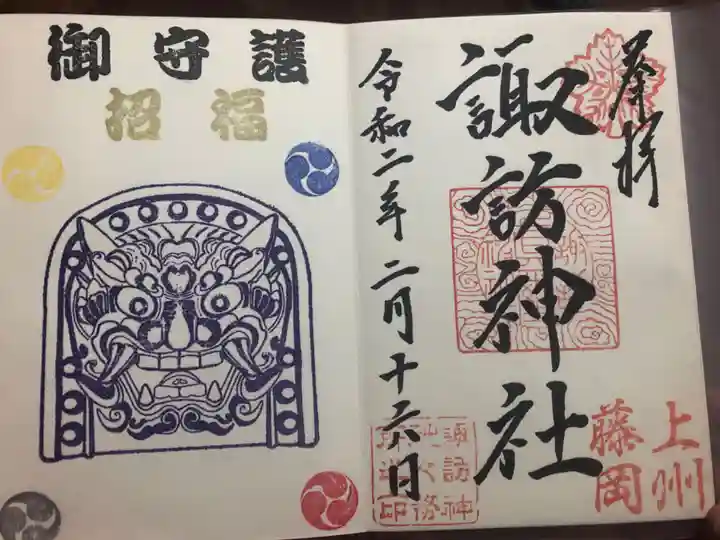 奉拝
上州
藤岡
諏訪神社
令和二年二月十六日
諏訪神
社之務
御守護
招福